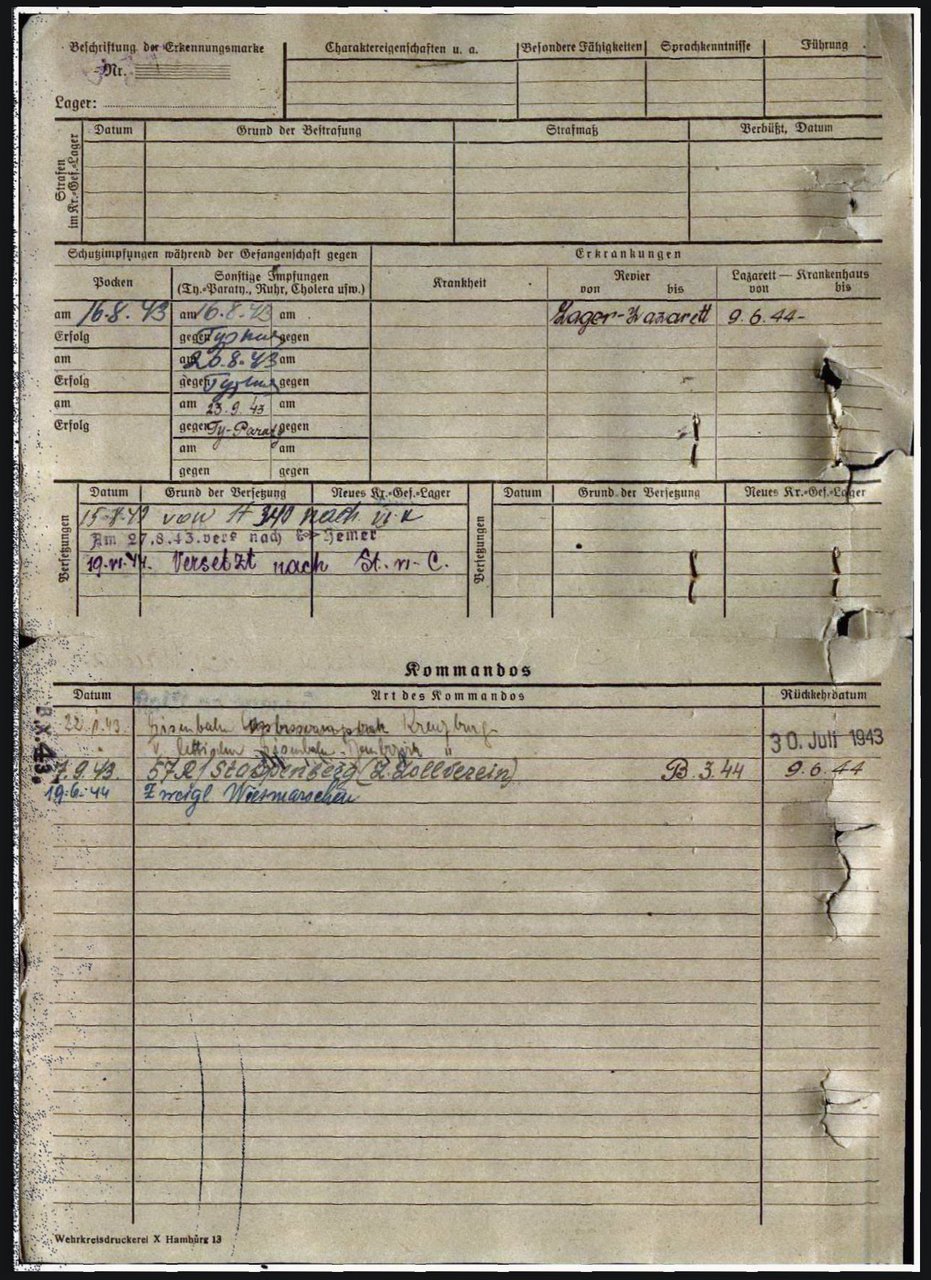 Beschriftung der Erkennungsmarke
Nr.
Lager:
Charaktereigenschaften u. a.
Besondere Fähigkeiten
Sprachkenntnisse
Führung
Strafen im Kr.-Gef.-Lager
Datum
Grund der Bestrafung
Strafmaß
Verbüßt, Datum
Schutzimpfungen während der Gefangenschaft gegen
Erkrankungen
Pocken
Sonstige Impfungen
(Ty.-Paraty., Ruhr, Cholera usw.)
Krankheit
Revier
von bis
Lazarett — Krankenhaus
von bis
am 16.8.43 am 16.8.43 am
Lager-Lazarett 9.6.44-
Erfolg gegen Typhus gegen
am am 26.8.43 am
Erfolg gegen Typhus gegen
am am 23.9.43 am
Erfolg gegen Ty-Paraty gegen
am am
gegen gegen
Versetzungen
Datum Grund der Versetzung Neues Kr.-Gef.-Lager
Versetzungen
Datum Grund der Versetzung Neues Kr.-Gef.-Lager
von St 340 nach
Am 27.8.43 vers nach Hemer
19.VI.44. Versetzt nach St. VI-C.
Kommandos
Datum Art des Kommandos Rückkehrdatum
Eisenbahn Kreuzburg
30. Juli 1943
7.9.43. 57R/Stoppenberg (Z. Zollverein) B.3.44 9.6.44
19.6.44 Zweigl Wietmarschen
Wehrkreisdruckerei X Hamburg 13